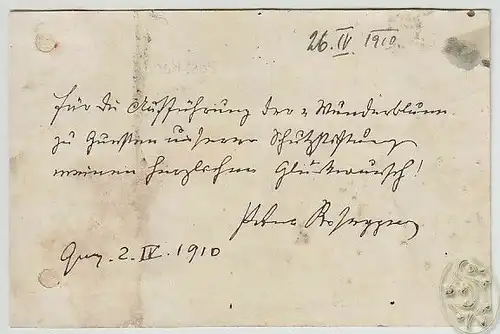 26. IV 1910.
Für die Aufführung der „Wunderblume
zu Gunsten unserer Schulstiftung
meinen herzlichen Glückwunsch!
Peter Rosegger
Graz. 2. IV. 1910